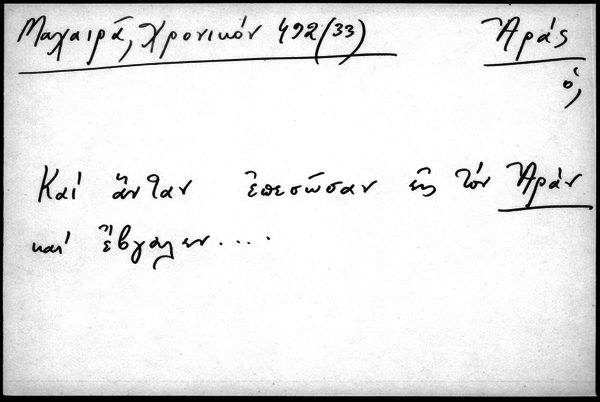 Μαχαιρᾶ, Χρονικόν 492(33) Ἀρᾶς
ὁ,
Καί ἄνταν ἐπεσῶσαν εἰς τόν Ἀρᾶν
καί ἔβγαλεν....